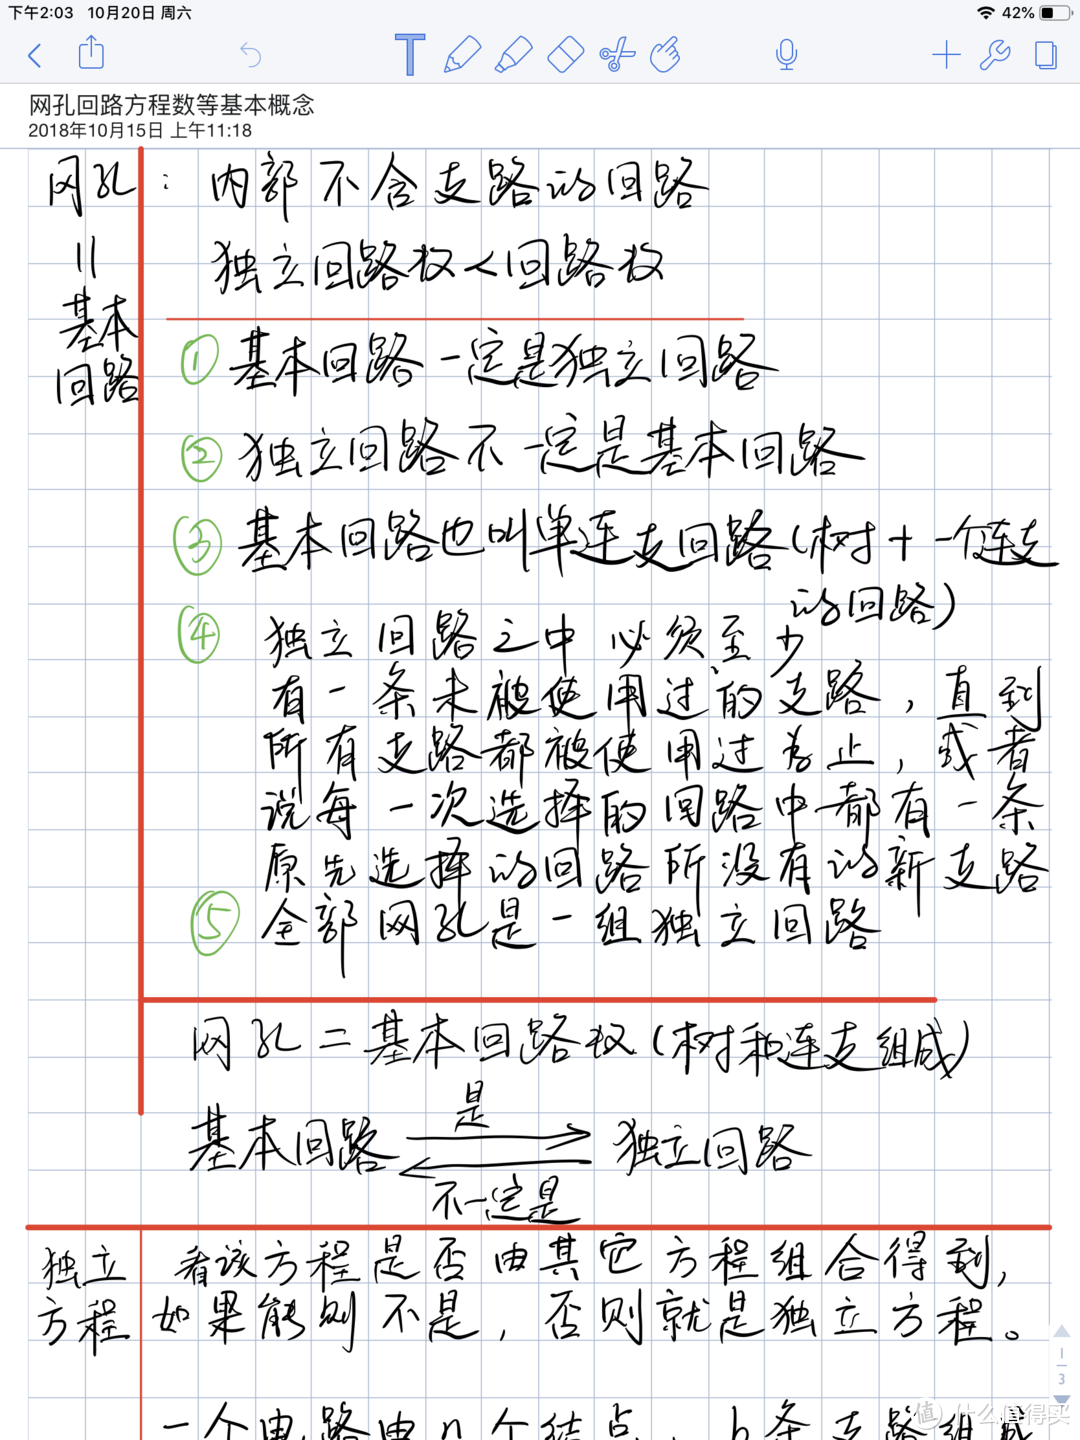 下午2:03 10月20日 周六
42%
网孔回路方程数等基本概念
2018年10月15日 上午11:18
网孔：内部不含支路的回路
= 基本回路
独立回路数<回路数
① 基本回路一定是独立回路
② 独立回路不一定是基本回路
③ 基本回路也叫单连支回路(树+一个连支
的回路)
④ 独立回路之中必须至少
有一条未被使用过的支路，直到
所有支路都被使用过为止，或者
说每一次选择的回路中都有一条
原先选择的回路所没有的新支路
⑤ 全部网孔是一组独立回路
网孔=基本回路数(树和连支组成)
是
基本回路 独立回路
不一定是
独立方程
看该方程是否由其它方程组合得到,
如果能则不是，否则就是独立方程。
1
3
一个电路由n个结点，b条支路组成
值 什么值得买